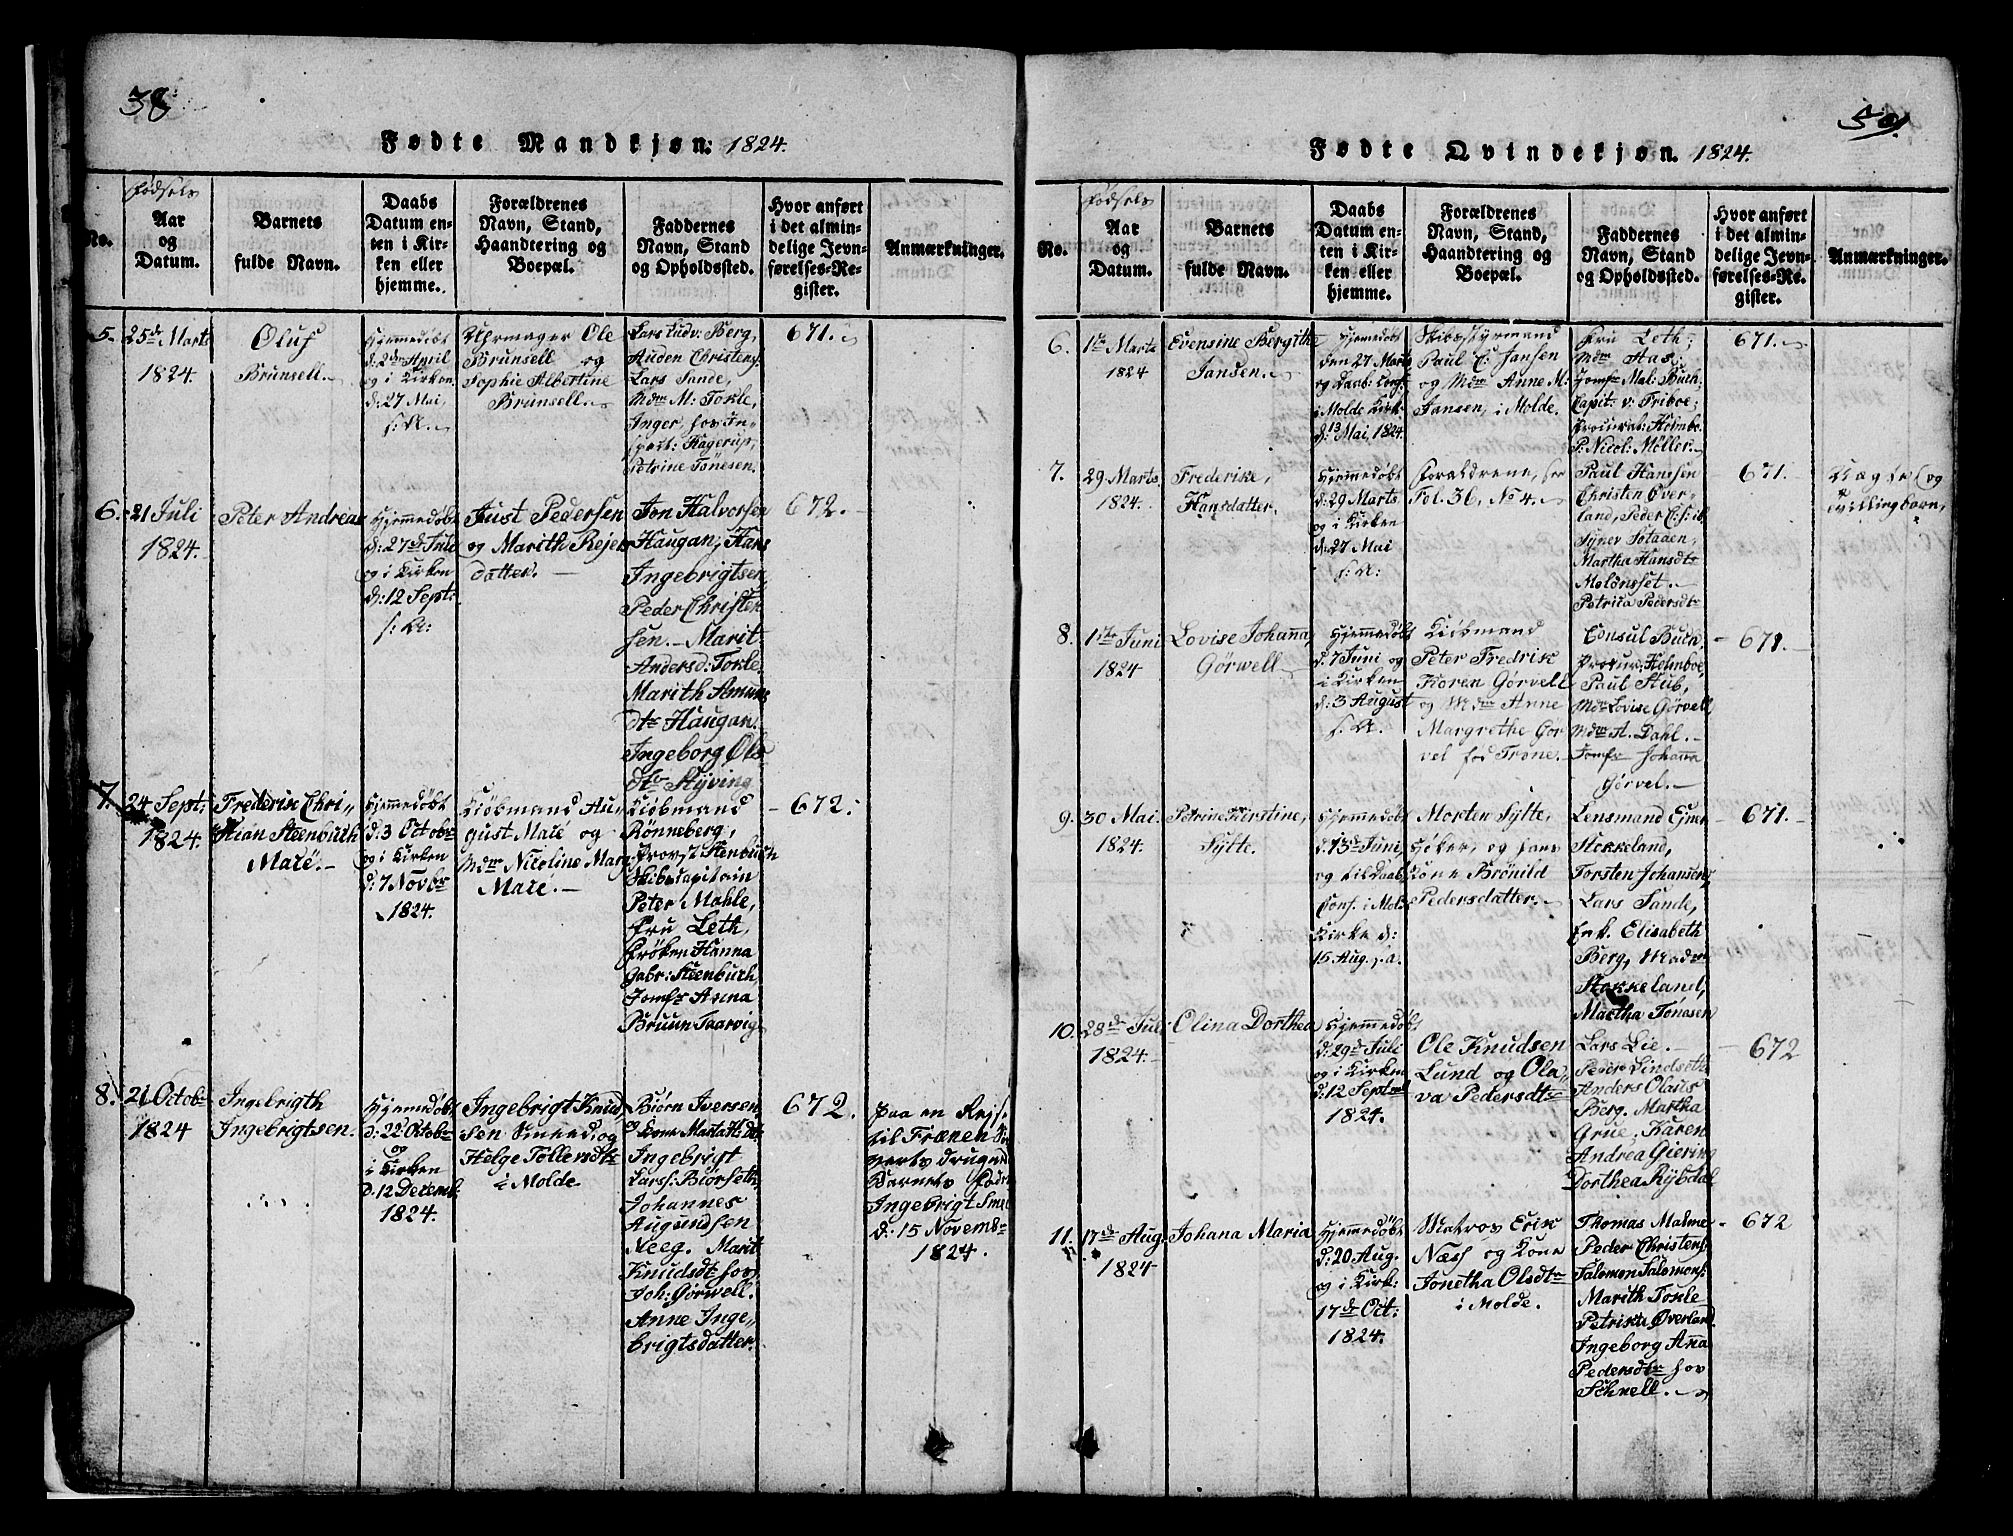 38.
Fødte Mandkjøn: 1824.
No.
Fødsels
Aar
og
Datum.
Barnets
fulde Navn.
Daabs
Datum en-
ten i Kir-
ken eller
hjemme.
Forældrenes
Navn, Stand,
Haandtering og
Boepæl.
Faddernes
Navn, Stand
og Opholdssted.
Hvor anført
i det almin-
delige Jevn-
førelses-Re-
gister.
Anmærkninger.
5.
25de Marts
1824.
Oluf
Brunsell.
Hjemmedøbt
d: 2den April
og i Kirken
d: 27 Mai,
s: A.
Uhrmager Ole
Brunsell og
Sophie Albertine
Brunsell.
Lars Ludv: Berg,
Auden Christens:
Lars Sande,
Mdm M: Tokle,
Inger, hos In-
spect: Hagerup,
Petrine Tønesen.
671.
6.
21 Juli
1824.
Peter Andreas
Hjemmedøbt
d: 27de Juli
og i Kirken
d: 12 Sept:
s: A:
Just Pedersen
og Marith Rejers
datter.
Jon Halvorsen
Haugan, Hans
Ingebrigtsen,
Peder Christen
sen. Marit
Andersd: Tokle
Marith Amunds
dtr Haugan.
Ingeborg Ols
dtr Styving
672.
7.
24 Sept:
1824.
Frederik Chri-
stian Steenbuch
Maré.
Hjemmedøbt
d: 3 Octobr
og i Kirken
d: 7 Novbr
1824.
Kiøbmand Au-
gust Maré og
Mdm Nicoline Marg
Maré.
Kiøbmand
Rønneberg,
Provst Stenbuch
Skibscapitain
Peter Møhle,
Fru Leth,
Frøken Hanna
Gabr: Steenbuch,
Jomfr Anna
Bruun Taarvig
672.
8.
21 Octobr
1824
Ingebrigth
Ingebrigtsen.
Hjemmedøbt
d: 22 Octobr
og
i Kirken
d. 12 Decemb.
1824.
Ingebrigt Knud
sen Smed, og
Helge Tollersdtr
i Molde
Biørn Iversen,
og Kone Martha H: dtr
Ingebrigt
Larss: Biørseth,
Johannes
Augundsen
Neeg. Marit
Knudsdtr hos
Joh: Gørwell.
Anne Inge-
brigtsdatter.
672.
paa en Rejse
til Frænen
Barnets Fader
Ingebrigt Smed
d: 15 Novembr
1824.
39.
Fødte Qvindekjøn. 1824.
No.
Fødsels
Aar
og
Datum.
Barnets
fulde Navn.
Daabs
Datum en-
ten i Kir-
ken eller
hjemme.
Forældrenes
Navn, Stand,
Haandtering og
Boepæl.
Faddernes
Navn, Stand
og Opholdssted.
Hvor anført
i det almin-
delige Jevn-
førelses-Re-
gister.
Anmærkninger.
6.
1ste Marts
1824
Evensine Bergithe
Jansen.
Hjemmedøbt
den 27 Marts
og Daab: Conf:
i Molde Kirk:
d: 13 Mai, 1824.
Skibsstyrmand
Paul C: Jansen
og Mdm Anne M:
Jansen, i Molde.
Fru Leth;
Mdm Aas;
Jomfr Mal: Buch.
Capit: v: Friboe;
Procurat: Holmboe.
P: Nicol: Møller.
671.
7.
29 Marts
1824.
Frederike,
Hansdatter.
Hjemmedøbt
d: 29 Marts
og i Kirken
d: 27 Mai
s: A:
Forældrene, see
Fol. 36, No 4.
Paul Hanssen
Christen Over-
land, Peder
Martha Hansdtr
Moldnsset.
Petrica Pedersdtr
671.
Uægte og
tvillingbarn,
8.
1ste Juni
1824
Lovise Johanna,
Gørwell
Hjemmedøbt
d: 7 Juni og
i Kirken
d: 3 August
s. A.
Kiøbmand
Peter Fredrik
Koren Gørvell
og Mdm Anne
Margrethe Gør
vel fød Trone.
Consul Buch,
Procur: Holmboe,
Paul Stub,
Mdm Lovise Gørvell
Mdm A. Dahl.
Jomfr Johanna
Gørvel.
671.
9.
30 Mai.
1824.
Petrine Kirstine,
Sylte.
Hjemmedøbt
d: 13de Juni,
og til Daabs
Conf. i Mol:
Kirke d:
15 Aug. s. a.
Morten Sylte,
Høker, og hans
Kone Brønild
Pedersdatter.
Lensmand Ejner
Stokkeland,
Torsten Johansen,
Lars Sande,
Enk. Elisabeth
Berg, Madm
Stokkeland,
Martha Tønesen
671.
10.
28de Juli
1824.
Olina Dorthea
Hjemmedøbt
d: 29de Juli
og i Kirken
d: 12 Septmb
1824.
Ole Knudsen
Lund og Ola-
va Pedersdtr
Lars Lie.
Peder Lindseth
Anders Olaus
Berg. Martha
Grue, Karen
Andrea Giering
Dorthea Rybdal
672
11.
17de Aug.
1824
Johana Maria
Hjemmedøbt
d: 20 Aug.
og i Kirk:
17de Oct:
1824.
Matros Erik
Næss og Kone
Jonetha Olsdtr
i Molde.
Thomas Malme
Peder Christens:
Salomon Salomons:
Marith Tokle
Petrikke Øverland.
Ingeborg Anna
Pedersdtr hos
Schnell.
672